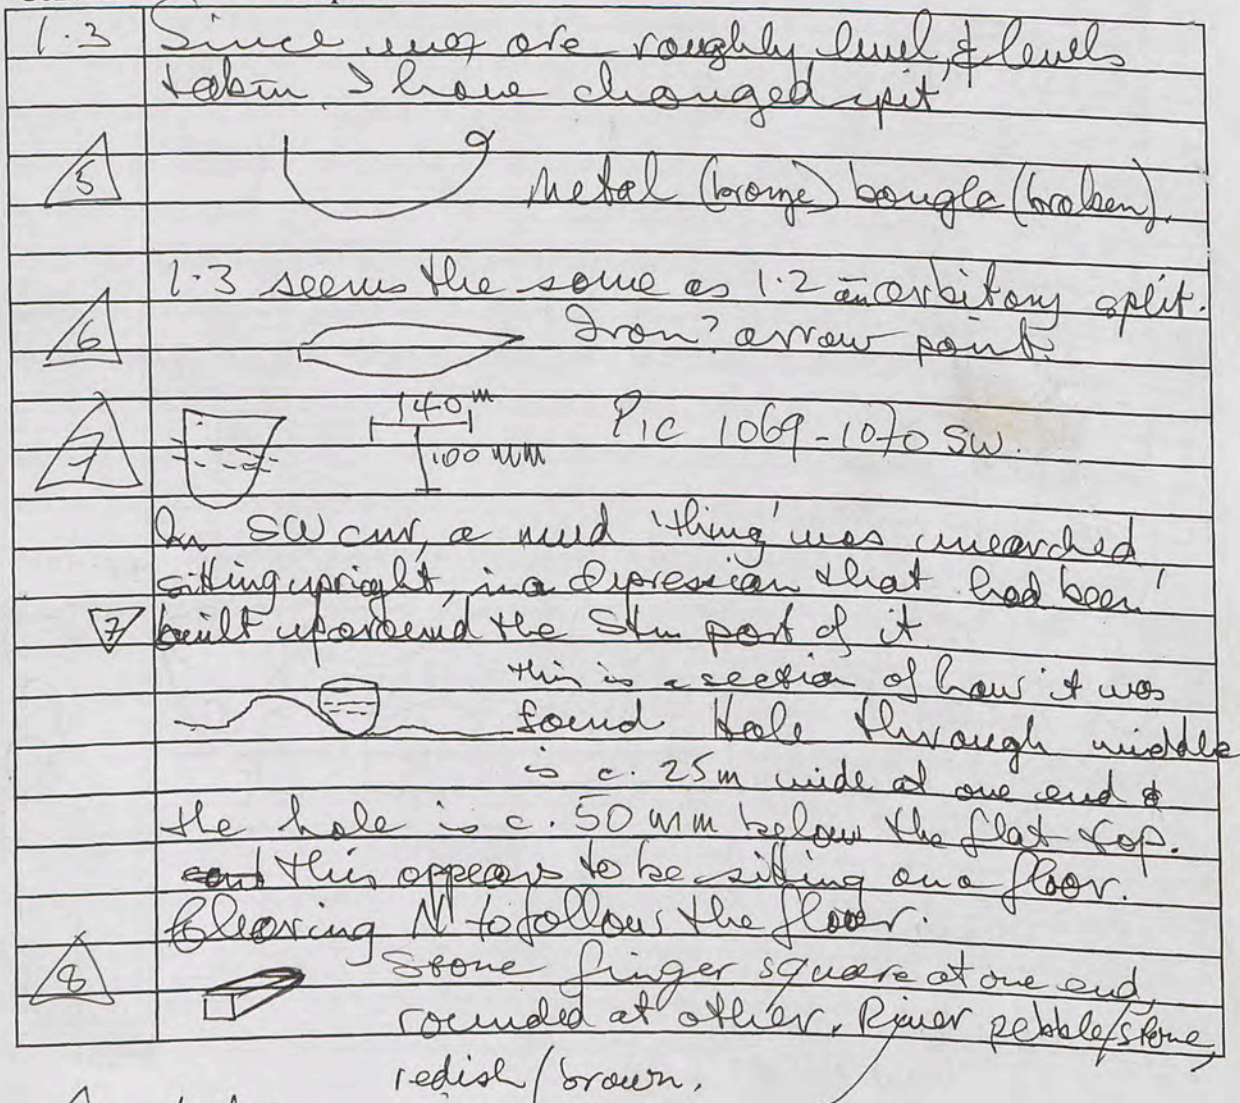 1.3 Since we are roughly level, & levels
taken I have changed spit
5
Metal (bronze) bangle (broken).
1.3 seems the same as 1.2 an arbitory split.
6 Iron? arrow point.
7 140 m Pic 1069-1070 SW.
100 mm
In SW cnr, a mud 'thing' was unearthed
sitting upright, in a depression that had been
7 built up around the Stn part of it
this is a section of how it was
found. Hole through middle
is c. 25m wide at one end &
the hole is c. 50 mm below the flat top.
this appears to be sitting on a floor.
Clearing N to follow the floor.
8 Stone finger square at one end,
rounded at other. River pebble/stone,
redish/brown.